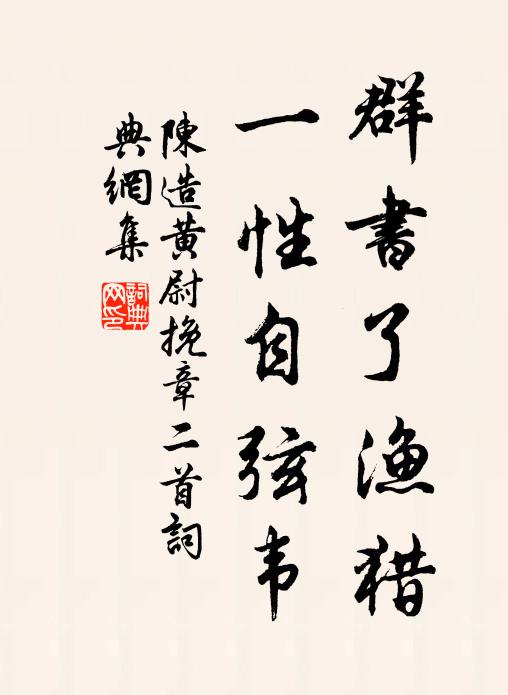 群書了漁猎
一性自弦韦
陳造黄尉挽章二首詞
典網集
詞典網印